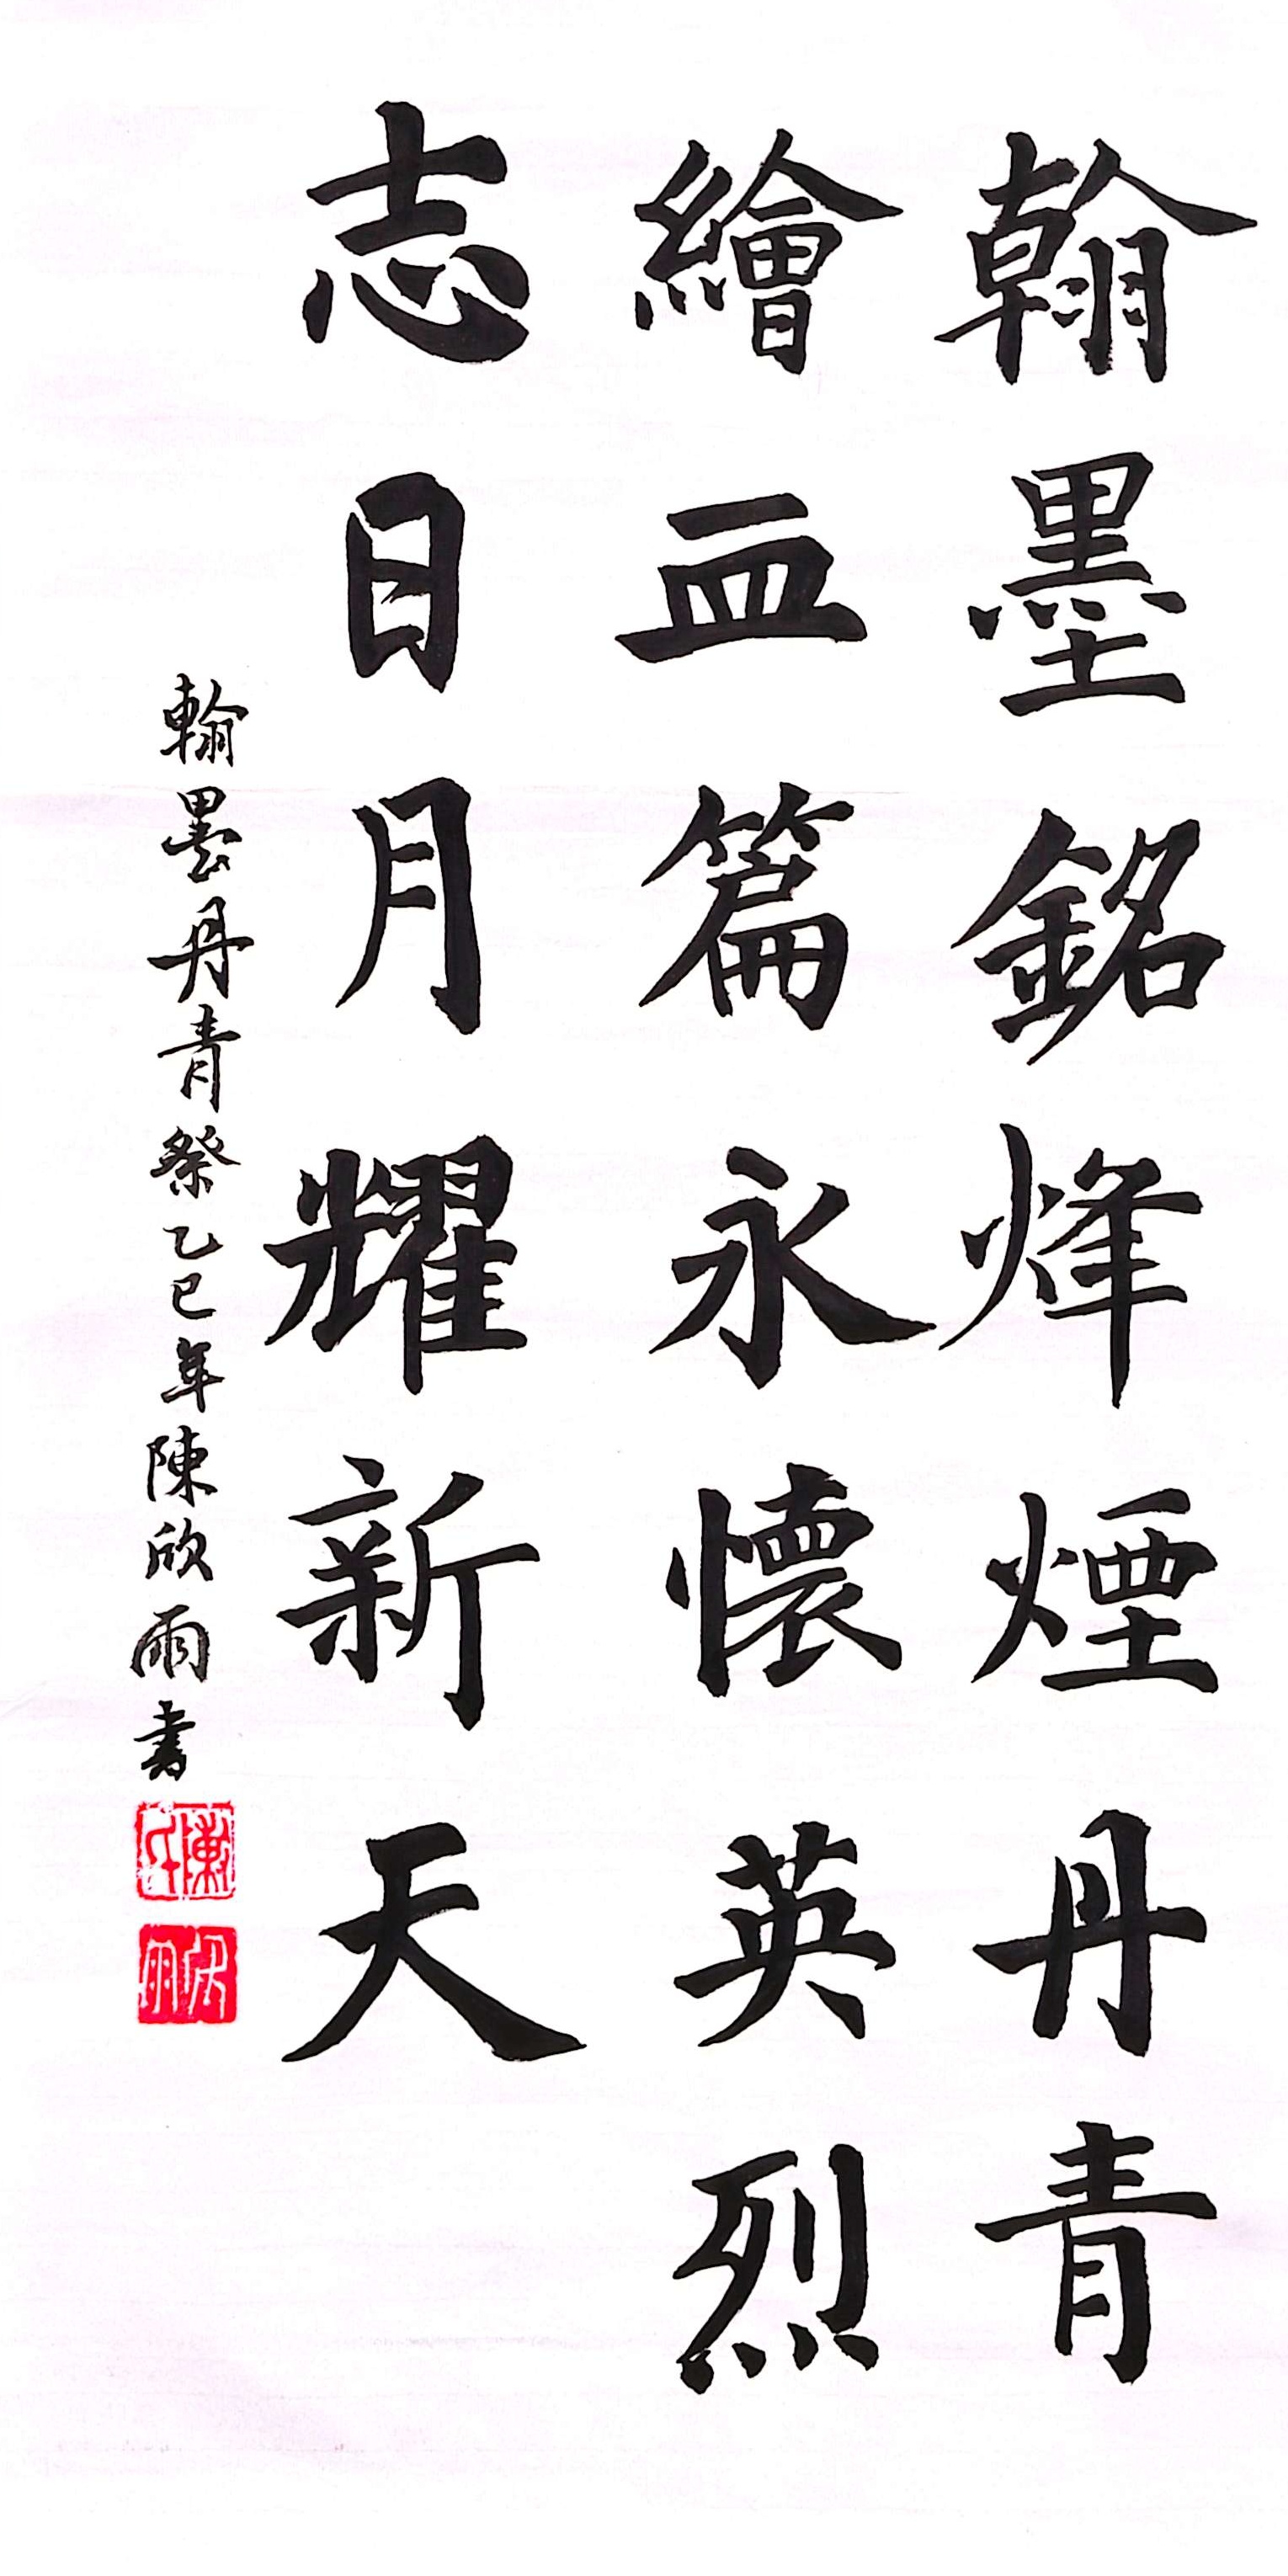 翰墨銘烽煙丹青
繪血篇永懷英烈
志日月耀新天
翰墨丹青祭乙巳年陳欣雨書
陳氏
欣雨